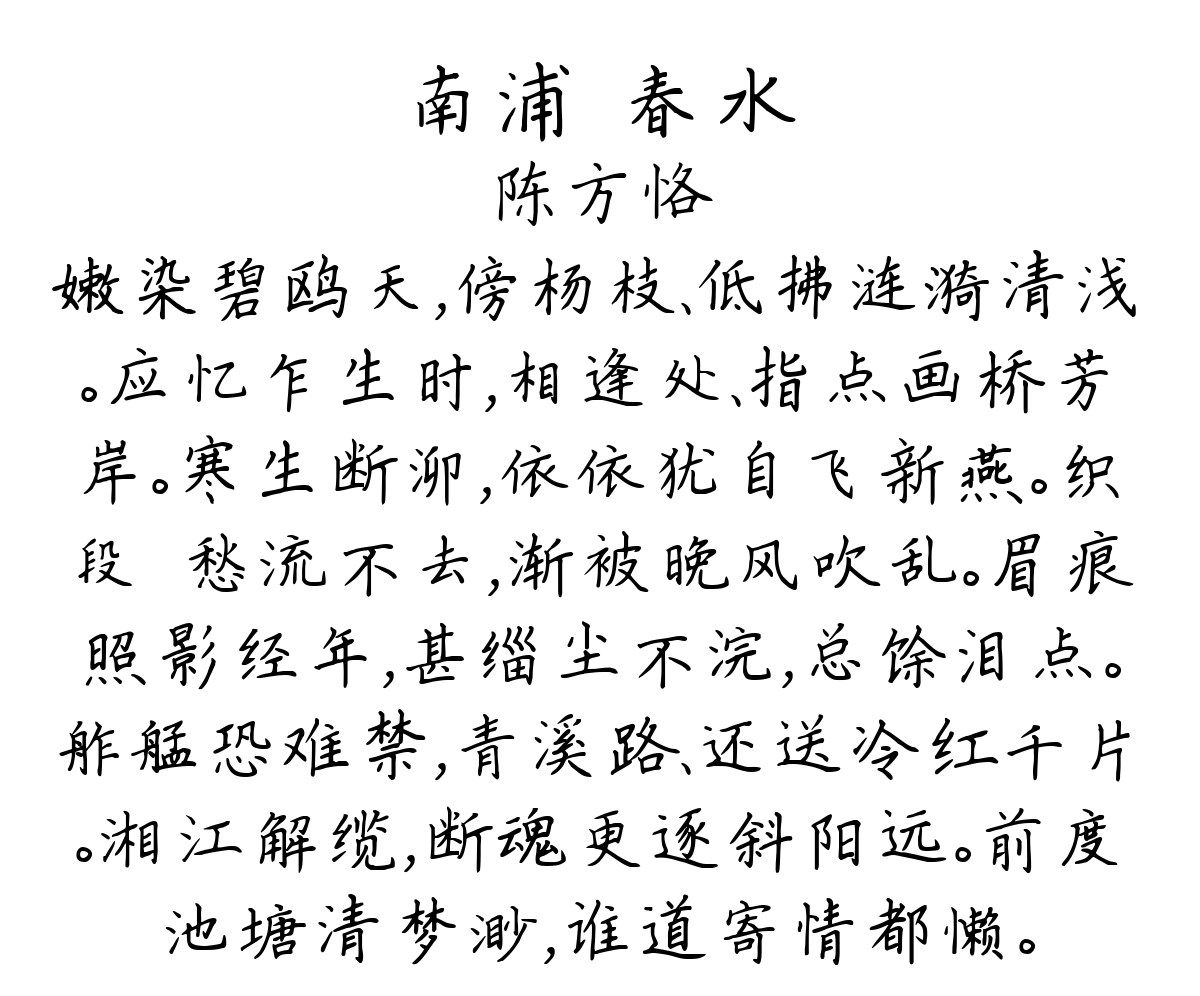 南浦 春水
陈方恪
嫩染碧鸥天,傍杨枝、低拂涟漪清浅
。应忆乍生时,相逢处、指点画桥芳
岸。寒生断泖,依依犹自飞新燕。织
段 愁流不去,渐被晚风吹乱。眉痕
照影经年,甚缁尘不浣,总馀泪点。
舴艋恐难禁,青溪路、还送冷红千片
。湘江解缆,断魂更逐斜阳远。前度
池塘清梦渺,谁道寄情都懒。